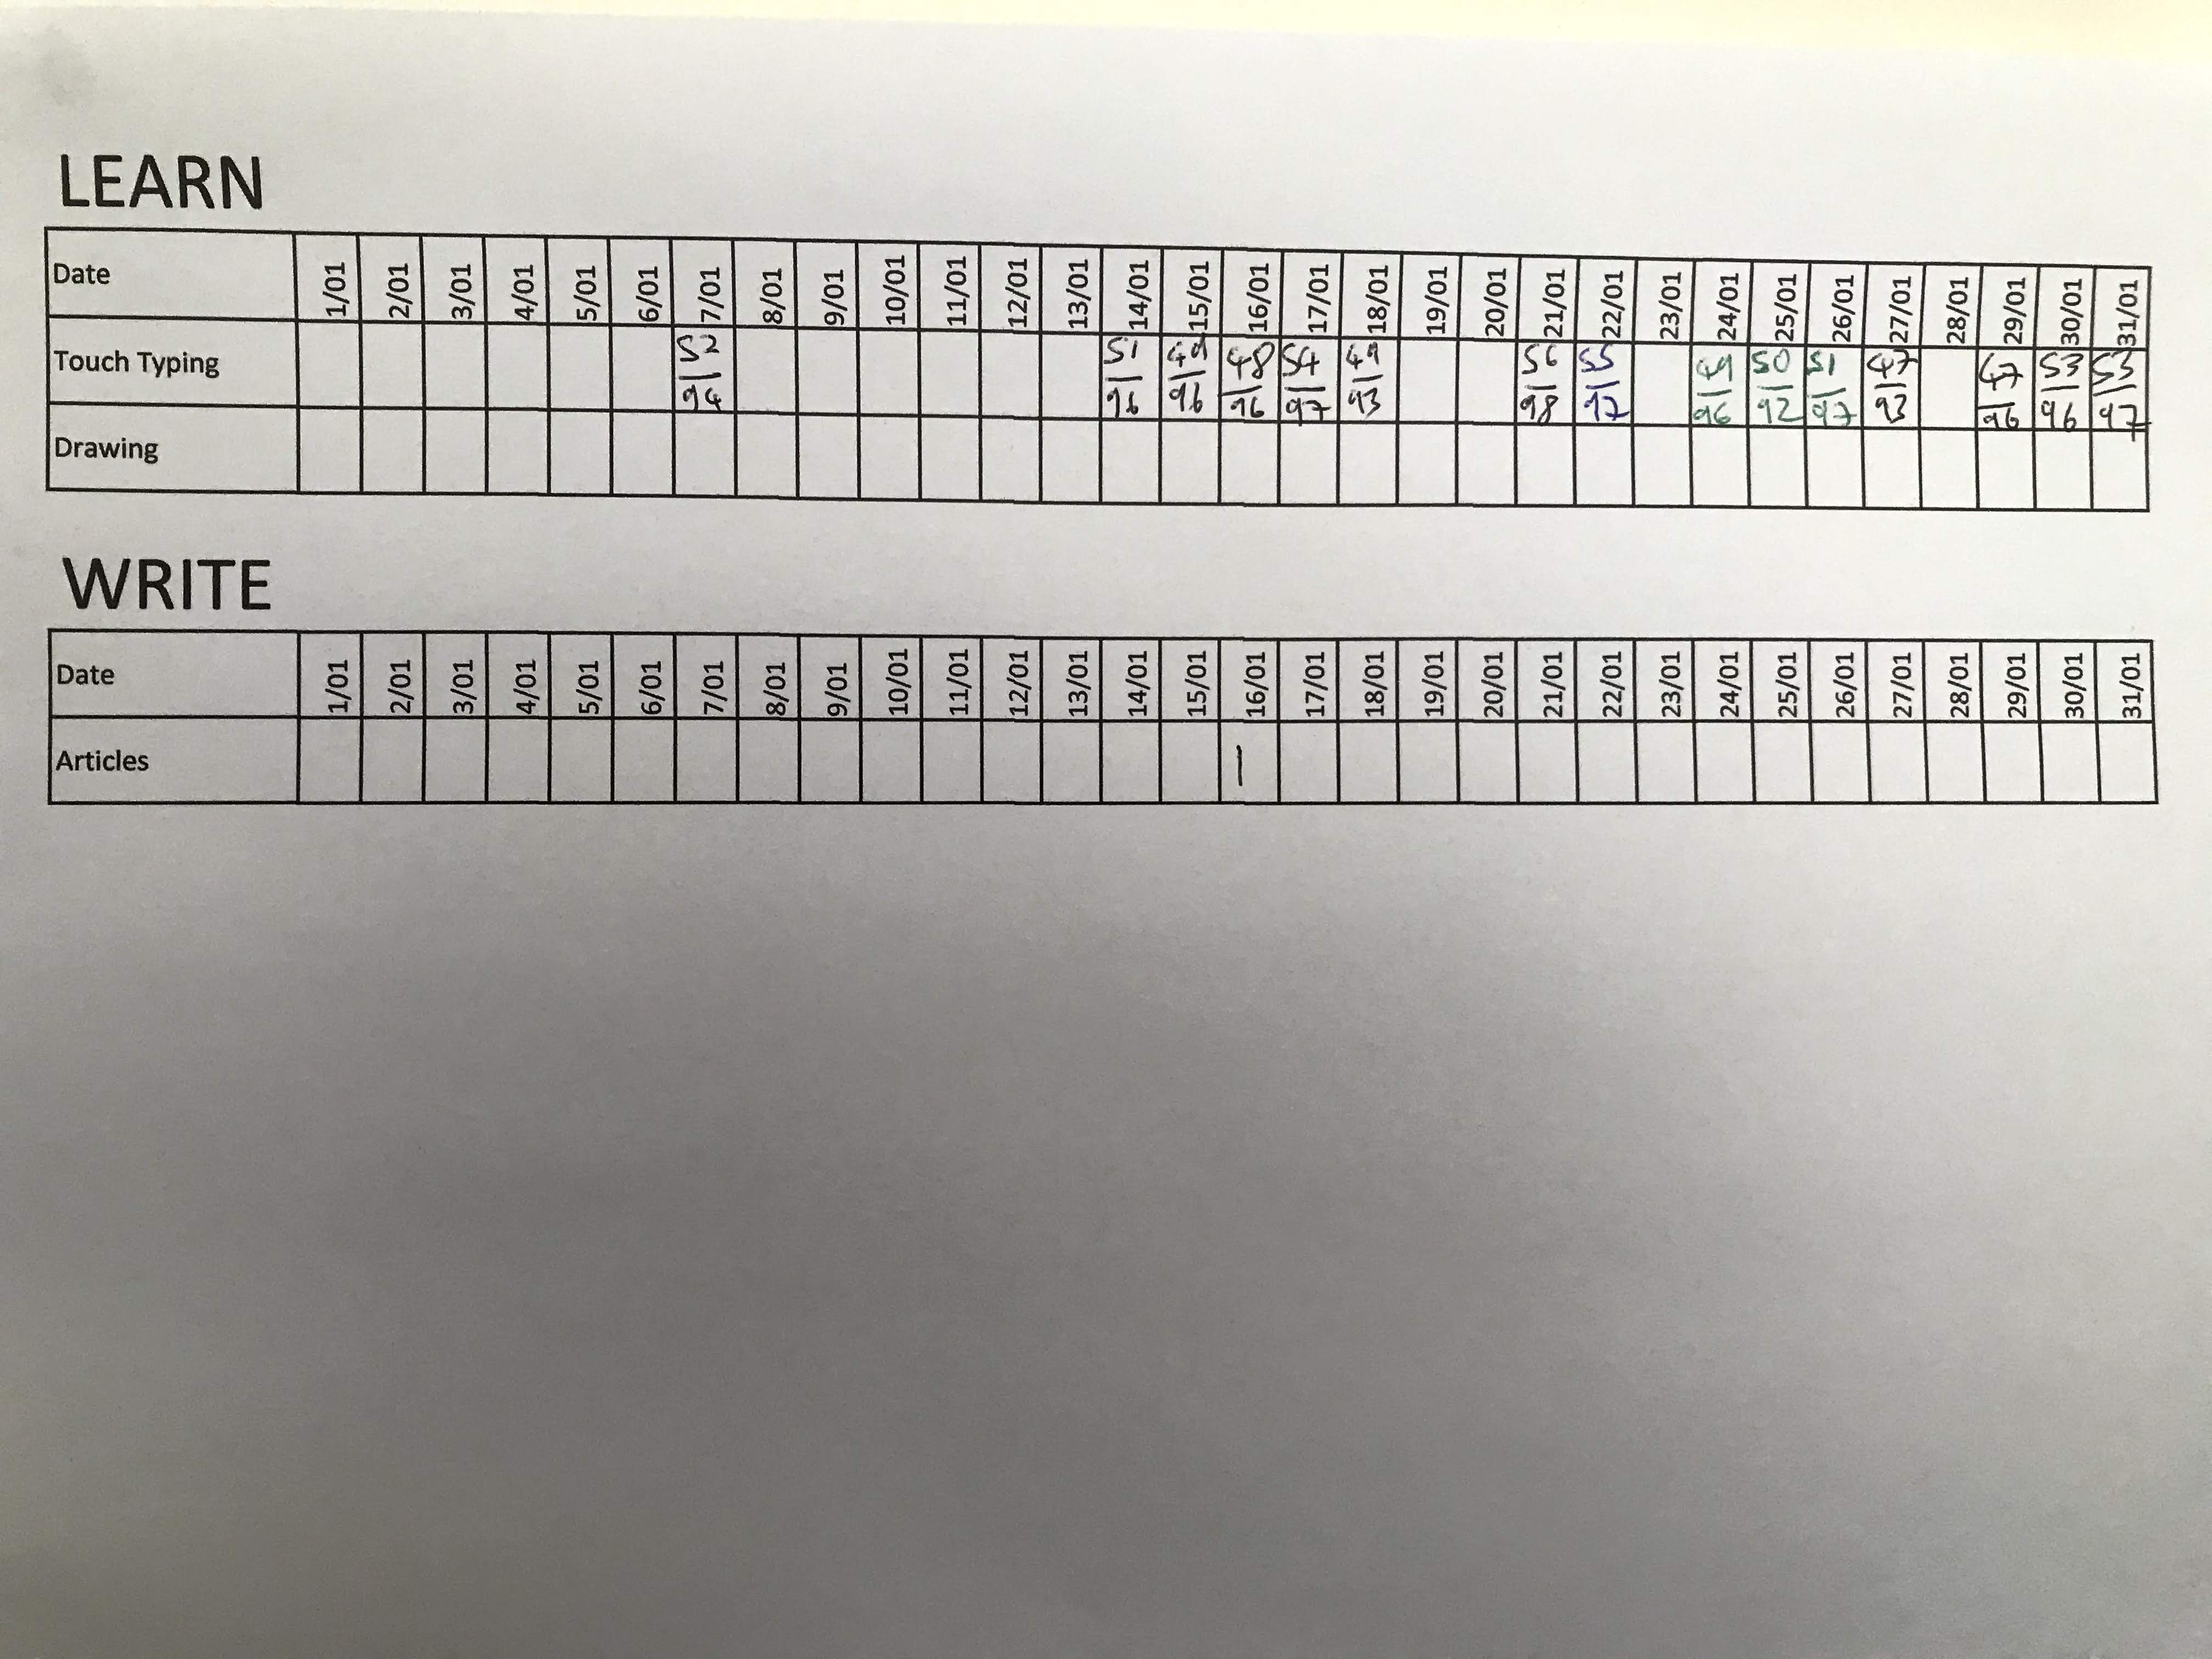 LEARN
Date 1/01 2/01 3/01 4/01 5/01 6/01 7/01 8/01 9/01 10/01 11/01 12/01 13/01 14/01 15/01 16/01 17/01 18/01 19/01 20/01 21/01 22/01 23/01 24/01 25/01 26/01 27/01 28/01 29/01 30/01 31/01
Touch Typing 52/94 51/96 49/96 48/96 54/97 49/93 56/98 55/97 49/96 50/92 51/97 47/93 47/96 53/96 53/97
Drawing
WRITE
Date 1/01 2/01 3/01 4/01 5/01 6/01 7/01 8/01 9/01 10/01 11/01 12/01 13/01 14/01 15/01 16/01 17/01 18/01 19/01 20/01 21/01 22/01 23/01 24/01 25/01 26/01 27/01 28/01 29/01 30/01 31/01
Articles 1